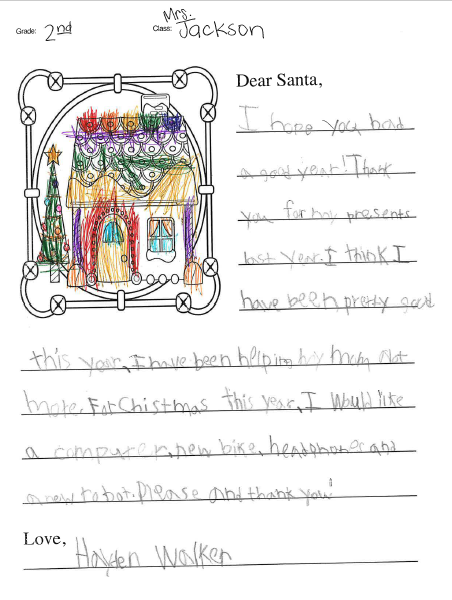 Grade: 2nd
Class: Mrs. Jackson
Dear Santa,
I hope you had
a good year! Thank
you for my presents
last year. I think I
have been pretty good
this year, I have been helping my mom alot
more. For Chistmas this year, I would like
a computer, new bike, headphones and
a new robot. Please and thank you!
Love, Hayden Walker